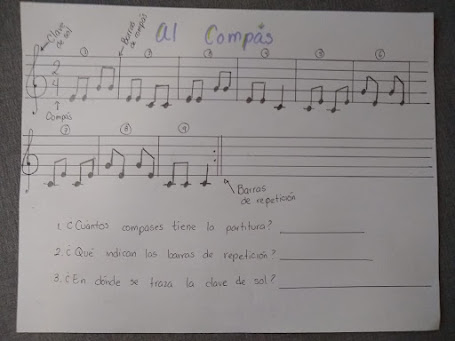 Al Compás
Clave
de sol
Barras
de compás
① ② ③ ④ ⑤ ⑥
2
4
Compás
⑦ ⑧ ⑨
Barras
de repetición
1. ¿Cuántos compases tiene la partitura?
2. ¿Qué indican las barras de repetición?
3. ¿En dónde se traza la clave de sol?